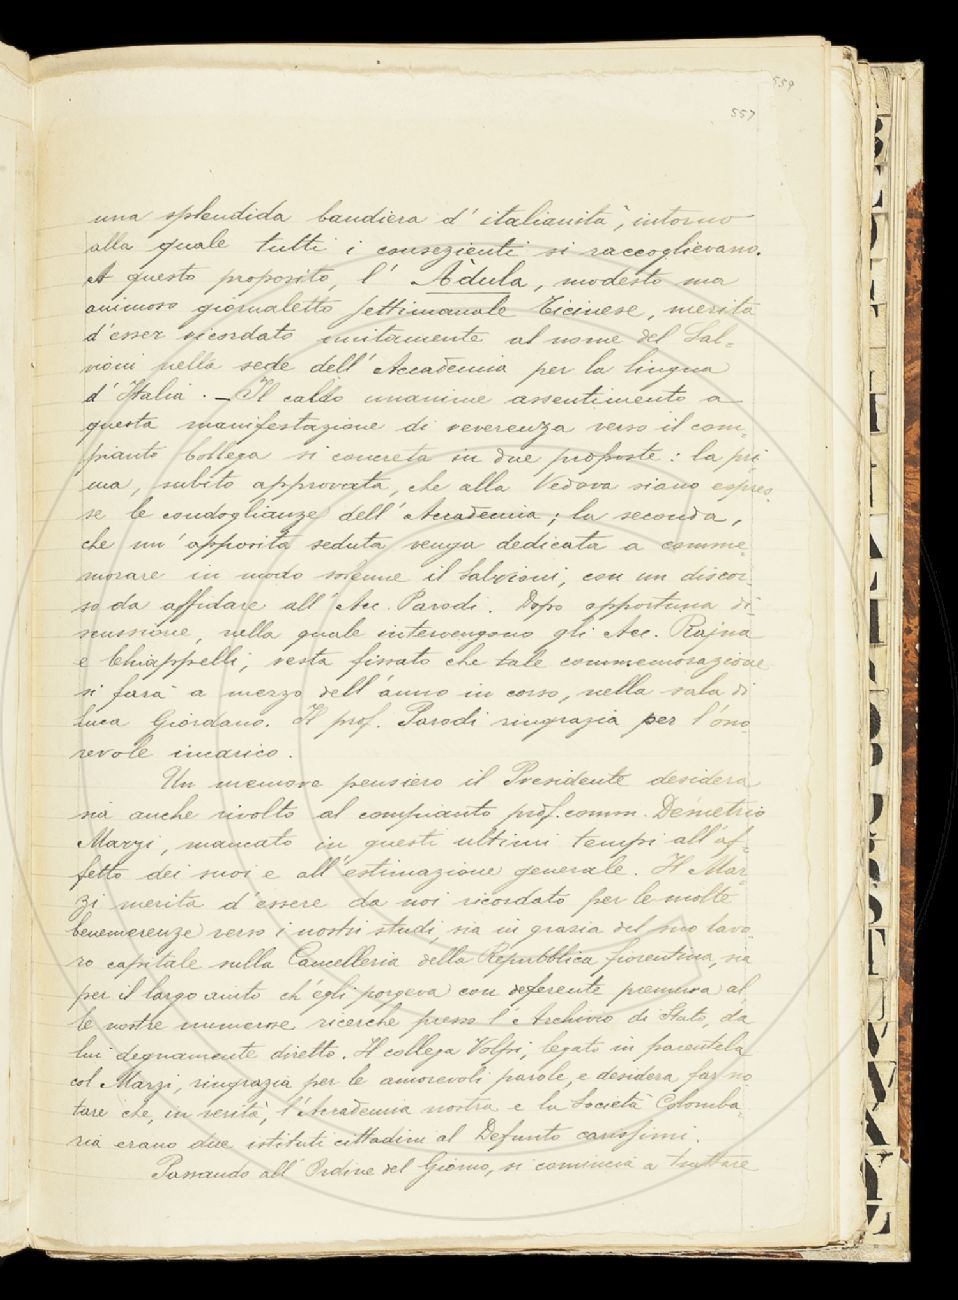 559
557
una splendida bandiera d'italianità, intorno
alla quale tutti i consezienti si raccoglievano.
A questo proposito, l'Àdula, modesto ma
animoso giornaletto settimanale Ticinese, merita
d'esser ricordato unitamente al nome del Sal=
vioni nella sede dell'Accademia per la lingua
d'Italia. — Il caldo unanime assentimento a
questa manifestazione di reverenza verso il com=
pianto Collega si concreta in due proposte: la pri
ma, subito approvata, che alla Vedova siano espres
se le condoglianze dell'Accademia; la seconda,
che un'apposita seduta venga dedicata a comme=
morare in modo solenne il Salvioni, con un discor=
so da affidare all'Acc. Parodi. Dopo opportuna di=
scussione, nella quale intervengono gli Acc. Rajna
e Chiappelli, resta fissato che tale commemorazione
si farà a marzo dell'anno in corso, nella sala di
Luca Giordano. Il prof. Parodi ringrazia per l'ono=
revole incarico.
Un memore pensiero il Presidente desidera
sia anche rivolto al compianto prof. comm. Demetrio
Marzi, mancato in questi ultimi tempi all'af=
fetto dei suoi e all'estimazione generale. Il Mar=
zi merita d'essere da noi ricordato per le molte
benemerenze verso i nostri studi sia in grazia del suo lavo
ro capitale sulla Cancelleria della Repubblica fiorentina, sia
per il largo aiuto ch'egli porgeva con deferente premura al
le nostre numerose ricerche presso l'Archivio di Stato, da
lui degnamente diretto. Il collega Volpi, legato in parentela
col Marzi, ringrazia per le amorevoli parole, e desidera far no
tare che, in verità, l'Accademia nostra e la Società Colomba=
ria erano due istituti cittadini al Defunto carissimi.
Passando all'Ordine del Giorno, si comincia a trattare